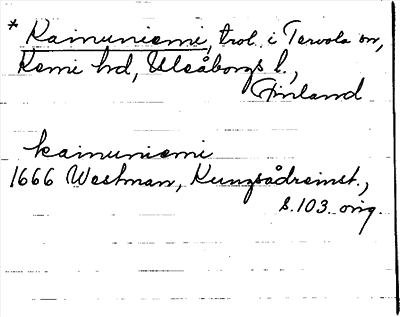 * Kainuniemi, trol. i Tervola sn,
Kemi hd, Uleåborgs l.,
Finland
kainuniemi
1666 Westman, Kungsådreinst.,
s. 103. orig.